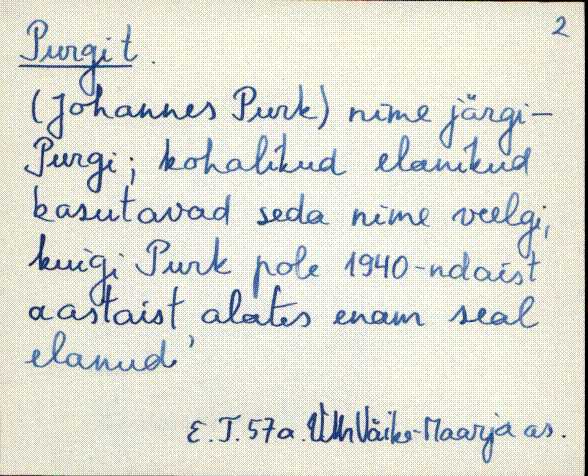 2
Purgit.
(Johannes Purk) nime järgi-
Purgi; kohalikud elanikud
kasutavad seda nime veelgi,
kuigi Purk pole 1940-ndaist
aastaist alates enam seal
elanud'
E. T. 57a. Väike-Maarja as.